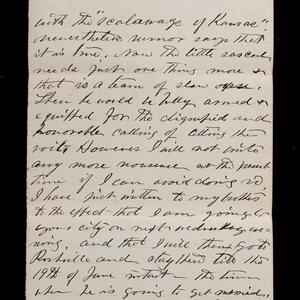 with the "Scalawags of Kansas"
nevertheless rumor says that
it is true. Now the little rascal
needs just one thing more &
that is a team of slow oxen.
Then he would be fully armed &
equipped for the dignified and
honorable calling of
However I will not write
any more nonsense at the present
time if I can avoid doing so
I have just written to my brother
to the effect that I am going to
your city on next wednesday eve-
ning, and that I will then go to
Rockville and stay there till the
19th of June the time
when he is going to get married.